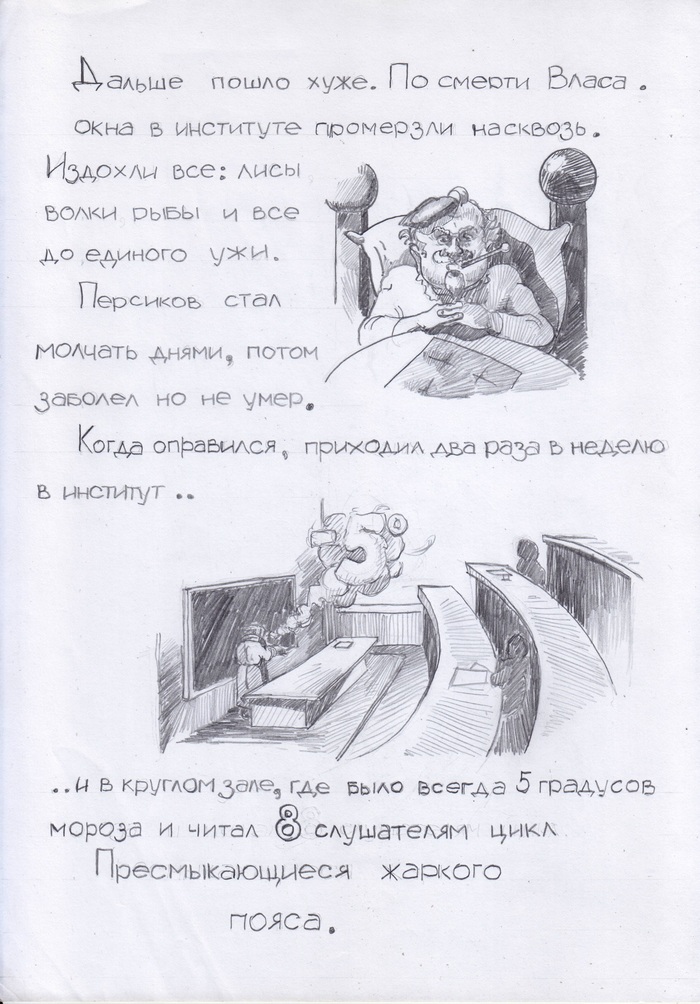 Дальше пошло хуже. По смерти Власа.
окна в институте промерзли насквозь.
Издохли все: лисы
волки рыбы и все
до единого ужи.
Персиков стал
молчать днями, потом
заболел но не умер.
Когда оправился, приходил два раза в неделю
в институт ..
..и в круглом зале, где было всегда 5 градусов
мороза и читал 8 слушателям цикл
Пресмыкающиеся жаркого
пояса.